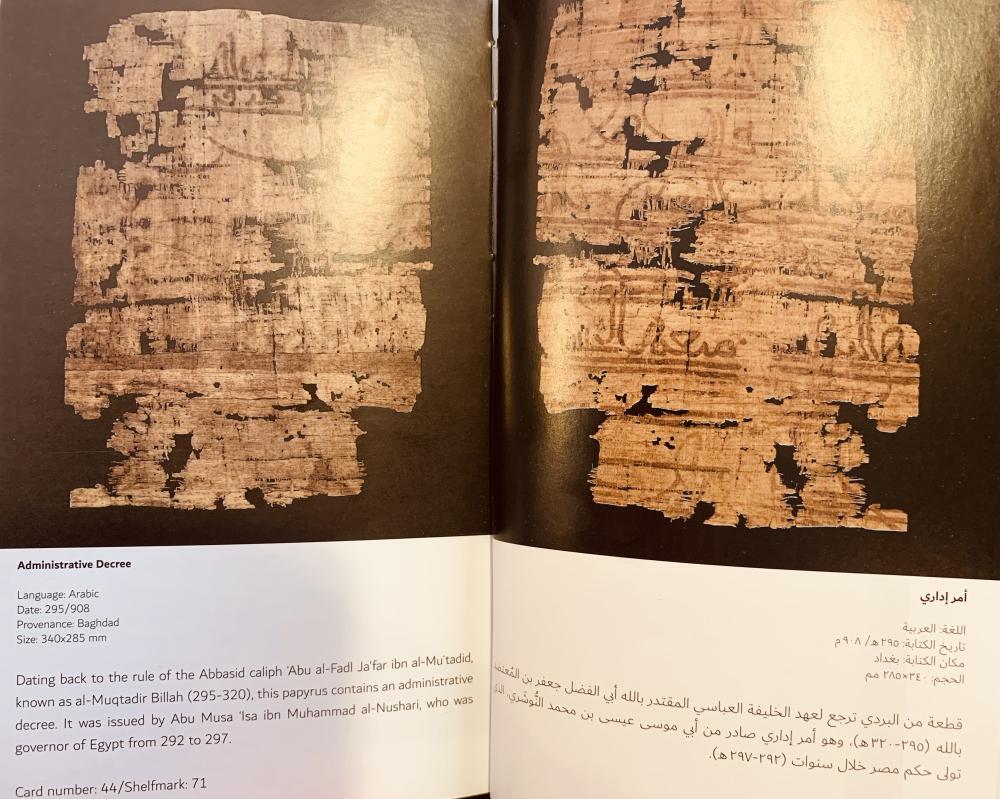 Administrative Decree
Language: Arabic
Date: 295/908
Provenance: Baghdad
Size: 340x285 mm
Dating back to the rule of the Abbasid caliph ‘Abu al-Fadl Ja‘far ibn al-Mu‘tadid,
known as al-Muqtadir Billah (295-320), this papyrus contains an administrative
decree. It was issued by Abu Musa ‘Isa ibn Muhammad al-Nushari, who was
governor of Egypt from 292 to 297.
Card number: 44/Shelfmark: 71
أمر إداري
اللغة: العربية
تاريخ الكتابة: ٢٩٥هـ/ ٩٠٨م
مكان الكتابة: بغداد
الحجم: ٣٤٠×٢٨٥ مم
قطعة من البردي ترجع لعهد الخليفة العباسي المقتدر بالله أبي الفضل جعفر بن المُعتضد
بالله (٢٩٥-٣٢٠هـ)، وهو أمر إداري صادر من أبي موسى عيسى بن محمد النُّوشَري، الذي
تولى حكم مصر خلال سنوات (٢٩٢-٢٩٧هـ).